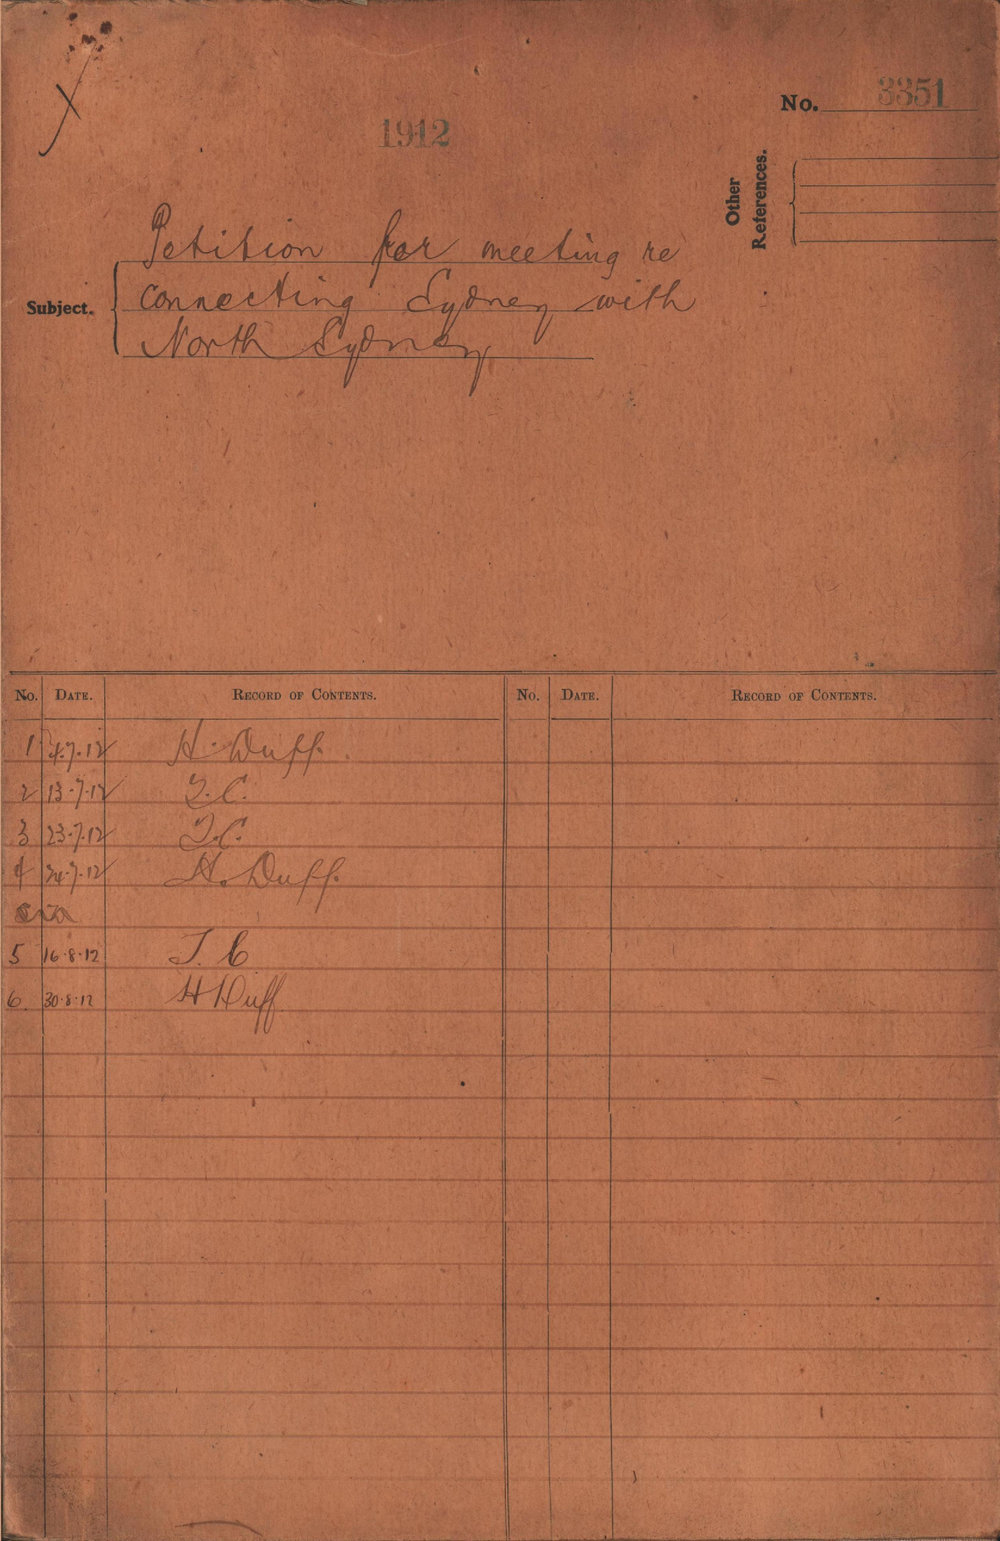 No. 3351
1912
Other
References.
Petition for meeting re
Subject. connecting Sydney with
North Sydney
No. DATE. RECORD OF CONTENTS. No. DATE. RECORD OF CONTENTS.
1 4.7.12 H. Duff.
2 13.7.12 T.C.
3 23.7.12 T.C.
4 24.7.12 H. Duff.
5 16.8.12 T.C
6. 30.8.12 H Duff